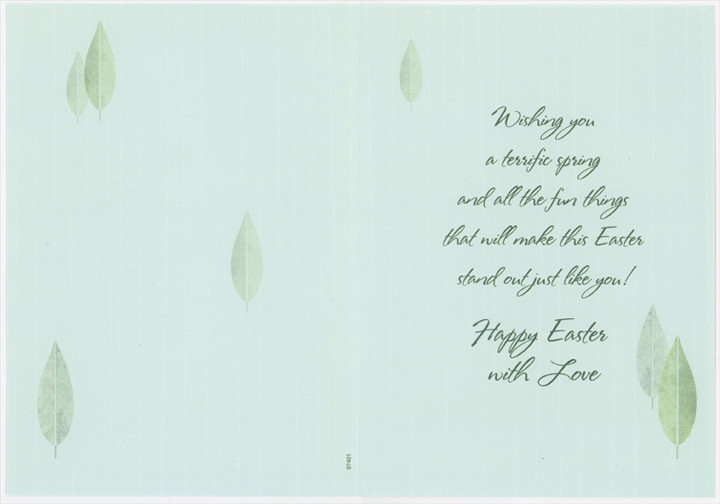 Wishing you
a terrific spring
and all the fun things
that will make this Easter
stand out just like you!
Happy Easter
with Love
07401